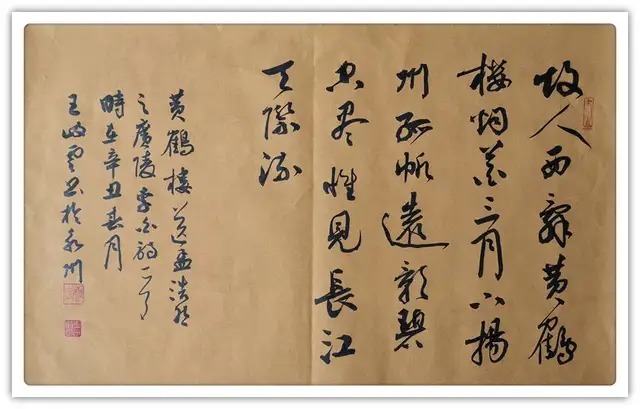 故人西辭黄鶴
楼烟花三月下揚
州孤帆遠影碧
空盡惟見長江
天際流
黄鶴楼送孟浩然
之廣陵李白詩一首
時在辛丑春月
王書於州